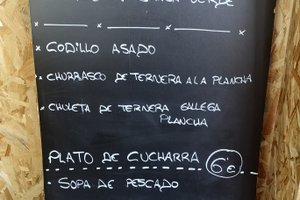 VERDE
x CODILLO ASADO
· CHURRASCO DE TERNERA A LA PLANCHA
· CHULETA DE TERNERA GALLEGA
PLANCHA
PLATO DE CUCHARA 6€
· SOPA DE PESCADO